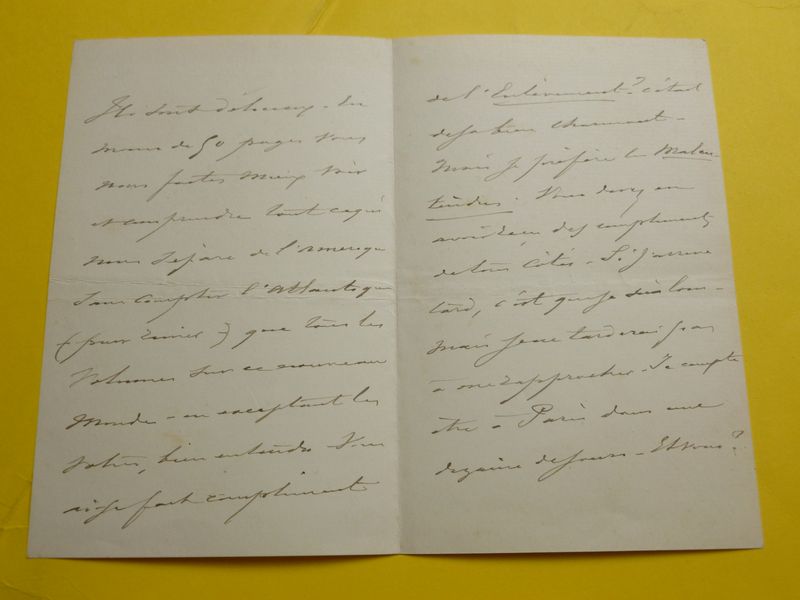 Ils sont délicieux. En
moins de 50 pages vous
nous faites mieux voir
et comprendre tout ce qui
nous sépare de l'Amérique
sans compter l'Atlantique
(pour rimer) que tous les
volumes sur ce nouveau
Monde - en exceptant les
votres, bien entendu. Vous
ai-je fait compliment
de l'Enlèvement? c'était
déjà bien charmant -
Mais je préfère les Malen-
tendus. Vous devez en
avoir reçu des compliments
de tous côtés - Si j'arrive
tard, c'est que je suis loin -
mais je ne tarderai pas
à me rapprocher - Je compte
être à Paris dans une
dizaine de jours - Et vous?